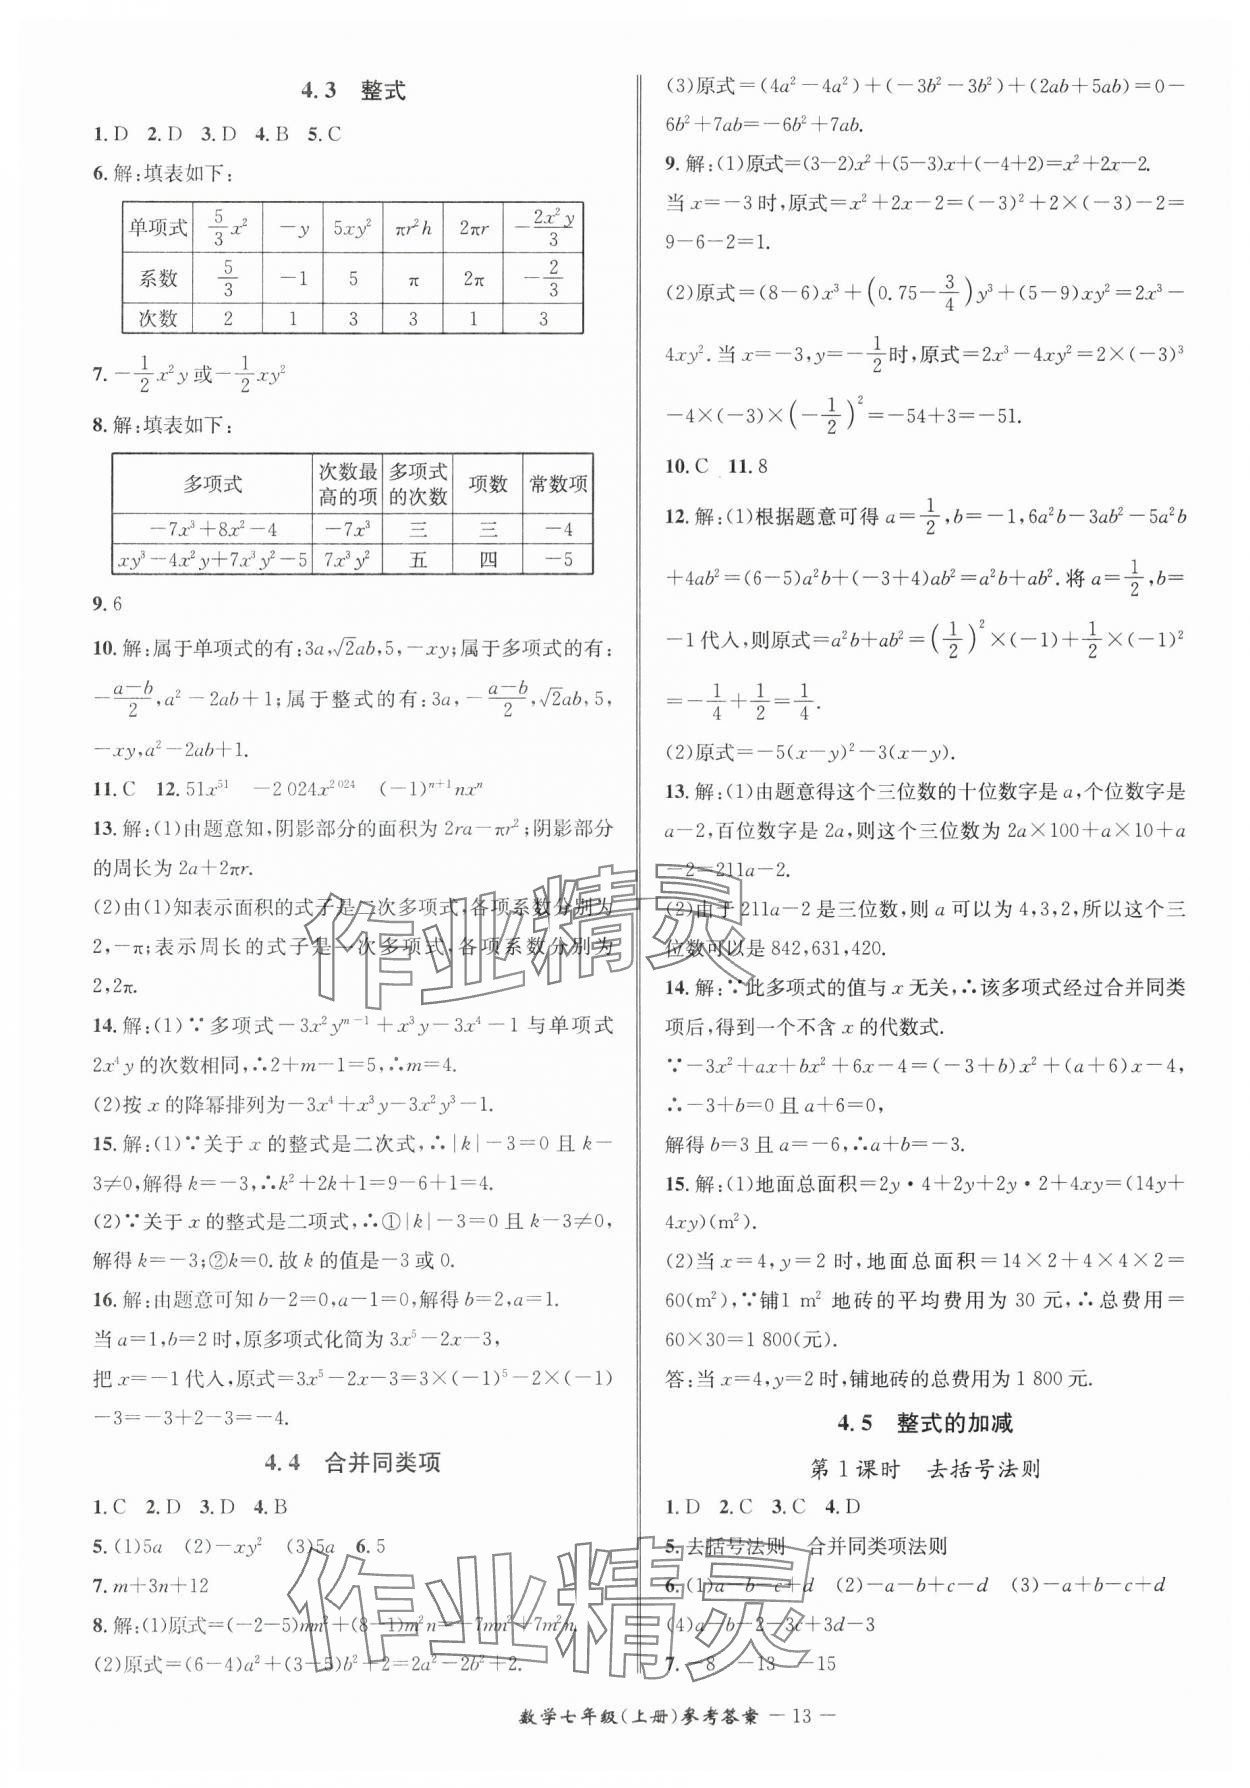 4.3 整式
1.D 2.D 3.D 4.B 5.C
6.解:填表如下:
单项式 5/3x² -y 5xy² πr²h 2πr -2x²y/3
系数 5/3 -1 5 π 2π -2/3
次数 2 1 3 3 1 3
7.-1/2x²y或-1/2xy²
8.解:填表如下:
多项式 次数最高的项 多项式的次数 项数 常数项
-7x³+8x²-4 -7x³ 三 三 -4
xy³-4x²y+7x³y²-5 7x³y² 五 四 -5
9.6
10.解:属于单项式的有:3a,√2ab,5,-xy;属于多项式的有:
-(a-b)/2,a²-2ab+1;属于整式的有:3a,-(a-b)/2,√2ab,5,
-xy,a²-2ab+1.
11.C 12.51x⁵¹ -2 024x²⁰²⁴ (-1)ⁿ⁺¹nxⁿ
13.解:(1)由题意知,阴影部分的面积为2ra-πr²;阴影部分
的周长为2a+2πr.
(2)由(1)知表示面积的式子是二次多项式,各项系数分别为
2,-π;表示周长的式子是一次多项式,各项系数分别为
2,2π.
14.解:(1)∵多项式-3x²yᵐ⁻¹+x³y-3x⁴-1与单项式
2x⁴y的次数相同,∴2+m-1=5,∴m=4.
(2)按x的降幂排列为-3x⁴+x³y-3x²y³-1.
15.解:(1)∵关于x的整式是二次式,∴|k|-3=0且k-
3≠0,解得k=-3,∴k²+2k+1=9-6+1=4.
(2)∵关于x的整式是二项式,∴①|k|-3=0且k-3≠0,
解得k=-3;②k=0.故k的值是-3或0.
16.解:由题意可知b-2=0,a-1=0,解得b=2,a=1.
当a=1,b=2时,原多项式化简为3x⁵-2x-3,
把x=-1代入,原式=3x⁵-2x-3=3×(-1)⁵-2×(-1)
-3=-3+2-3=-4.
4.4 合并同类项
1.C 2.D 3.D 4.B
5.(1)5a (2)-xy² (3)5a 6.5
7.m+3n+12
8.解:(1)原式=(-2-5)mn²+(8-1)m²n=-7mn²+7m²n.
(2)原式=(6-4)a²+(3-5)b²+2=2a²-2b²+2.
(3)原式=(4a²-4a²)+(-3b²-3b²)+(2ab+5ab)=0-
6b²+7ab=-6b²+7ab.
9.解:(1)原式=(3-2)x²+(5-3)x+(-4+2)=x²+2x-2.
当x=-3时,原式=x²+2x-2=(-3)²+2×(-3)-2=
9-6-2=1.
(2)原式=(8-6)x³+(0.75-3/4)y³+(5-9)xy²=2x³-
4xy².当x=-3,y=-1/2时,原式=2x³-4xy²=2×(-3)³
-4×(-3)×(-1/2)²=-54+3=-51.
10.C 11.8
12.解:(1)根据题意可得a=1/2,b=-1,6a²b-3ab²-5a²b
+4ab²=(6-5)a²b+(-3+4)ab²=a²b+ab².将a=1/2,b=
-1代入,则原式=a²b+ab²=(1/2)²×(-1)+1/2×(-1)²
=-1/4+1/2=1/4.
(2)原式=-5(x-y)²-3(x-y).
13.解:(1)由题意得这个三位数的十位数字是a,个位数字是
a-2,百位数字是2a,则这个三位数为2a×100+a×10+a
-2=211a-2.
(2)由于211a-2是三位数,则a可以为4,3,2,所以这个三
位数可以是842,631,420.
14.解:∵此多项式的值与x无关,∴该多项式经过合并同类
项后,得到一个不含x的代数式.
∵-3x²+ax+bx²+6x-4=(-3+b)x²+(a+6)x-4,
∴-3+b=0且a+6=0,
解得b=3且a=-6,∴a+b=-3.
15.解:(1)地面总面积=2y·4+2y+2y·2+4xy=(14y+
4xy)(m²).
(2)当x=4,y=2时,地面总面积=14×2+4×4×2=
60(m²),∵铺1 m²地砖的平均费用为30元,∴总费用=
60×30=1 800(元).
答:当x=4,y=2时,铺地砖的总费用为1 800元.
4.5 整式的加减
第1课时 去括号法则
1.D 2.C 3.C 4.D
5.去括号法则 合并同类项法则
6.(1)a-b-c+d (2)-a-b+c-d (3)-a+b-c+d
(4)a-b-2-3c+3d-3
7.-8 -13 -15
数学七年级(上册)参考答案 -13-
作业精灵
作业精灵